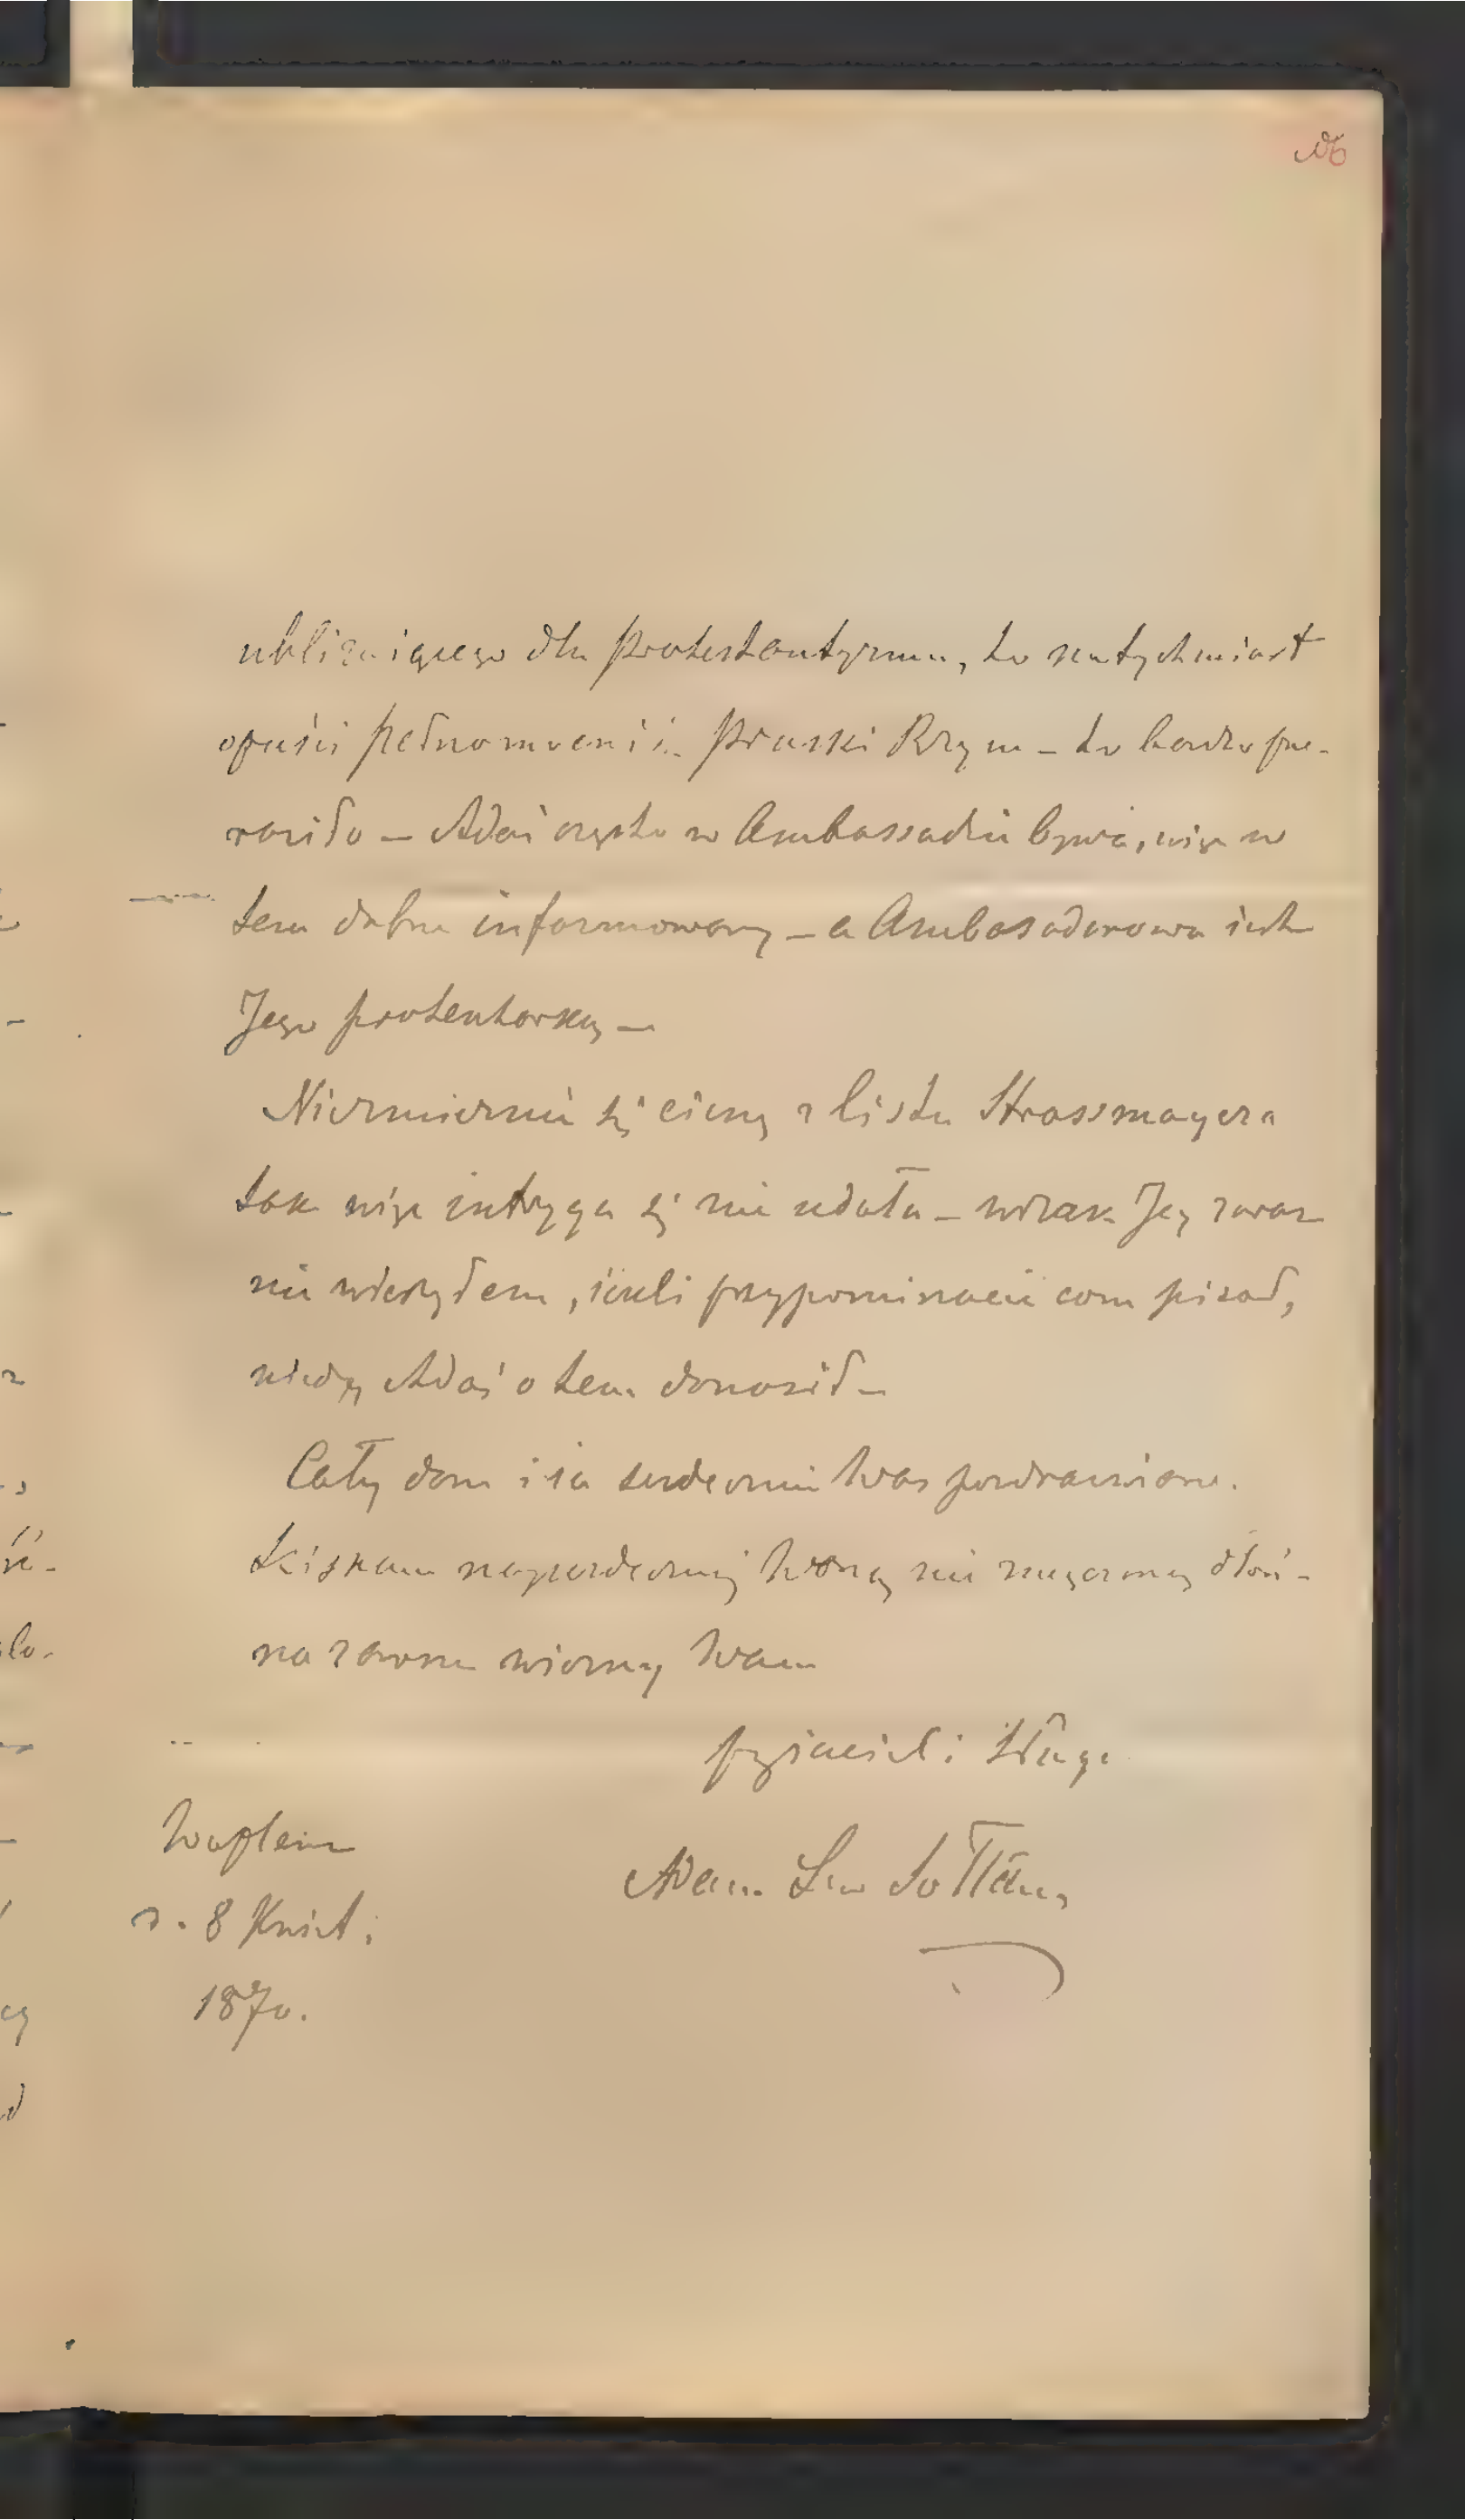 ubliżaiącego dla protestantyzmu, to natychmiast
opuści pełnomocnik Pruski Rzym – to bardzo prze-
raziło – Adaś często w Ambassadzie bywa, więc w
tem dobrze informowany – a Ambasadorowa iest
Jego protektorką –
Niezmiernie się cieszę z listu Strossmayera
tak więc intryga się nie udała – wszak Jey zaraz
nie wierzyłem, ieżeli przypominacie com pisał,
kiedy Adaś o tem donosił –
Cały dom i ia serdecznie Was pozdrawiamy.
Ściskam nayserdeczniej Waszą nie zmęczoną dłoń –
na zawsze wierny Wam
przyiaciel i sługa
Adam Lew Sołtan
Waplewo
d. 8 Kwiet:
1870.